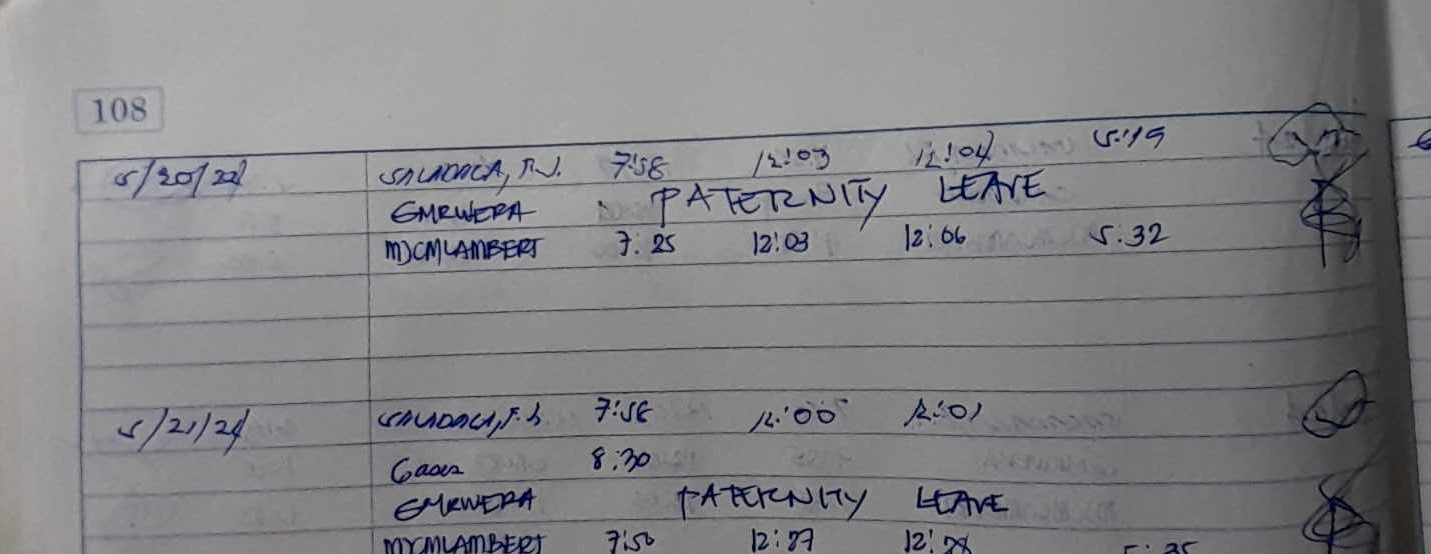 108
5/20/24 SALADAGA, F.J. 7:58 12:03 12:04 5:19
EMRWERA PATERNITY LEAVE
MJCMLAMBERT 7:25 12:03 12:06 5:32
5/21/24 SALADAGA, F.J. 7:58 12:00 12:01
8:30
EMRWERA PATERNITY LEAVE
MJCMLAMBERT 7:50 12:27 12:28 5:35